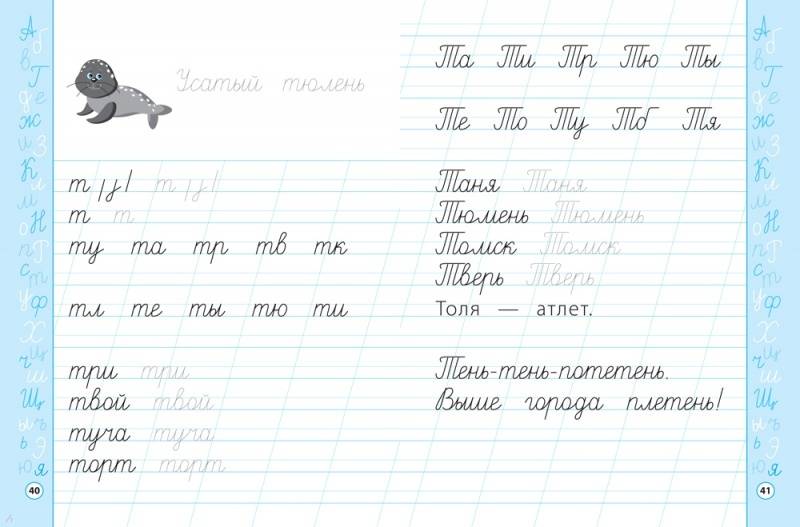 Усатый тюлень
т т
т т
ту та тр тв тк
тл те ты тю ти
три три
твой твой
туча туча
торт торт
40
Та Ти Тр Тю Ты
Те То Ту Тб Тя
Таня Таня
Тюмень Тюмень
Томск Томск
Тверь Тверь
Толя — атлет.
Тень-тень-потетень.
Выше города плетень!
41